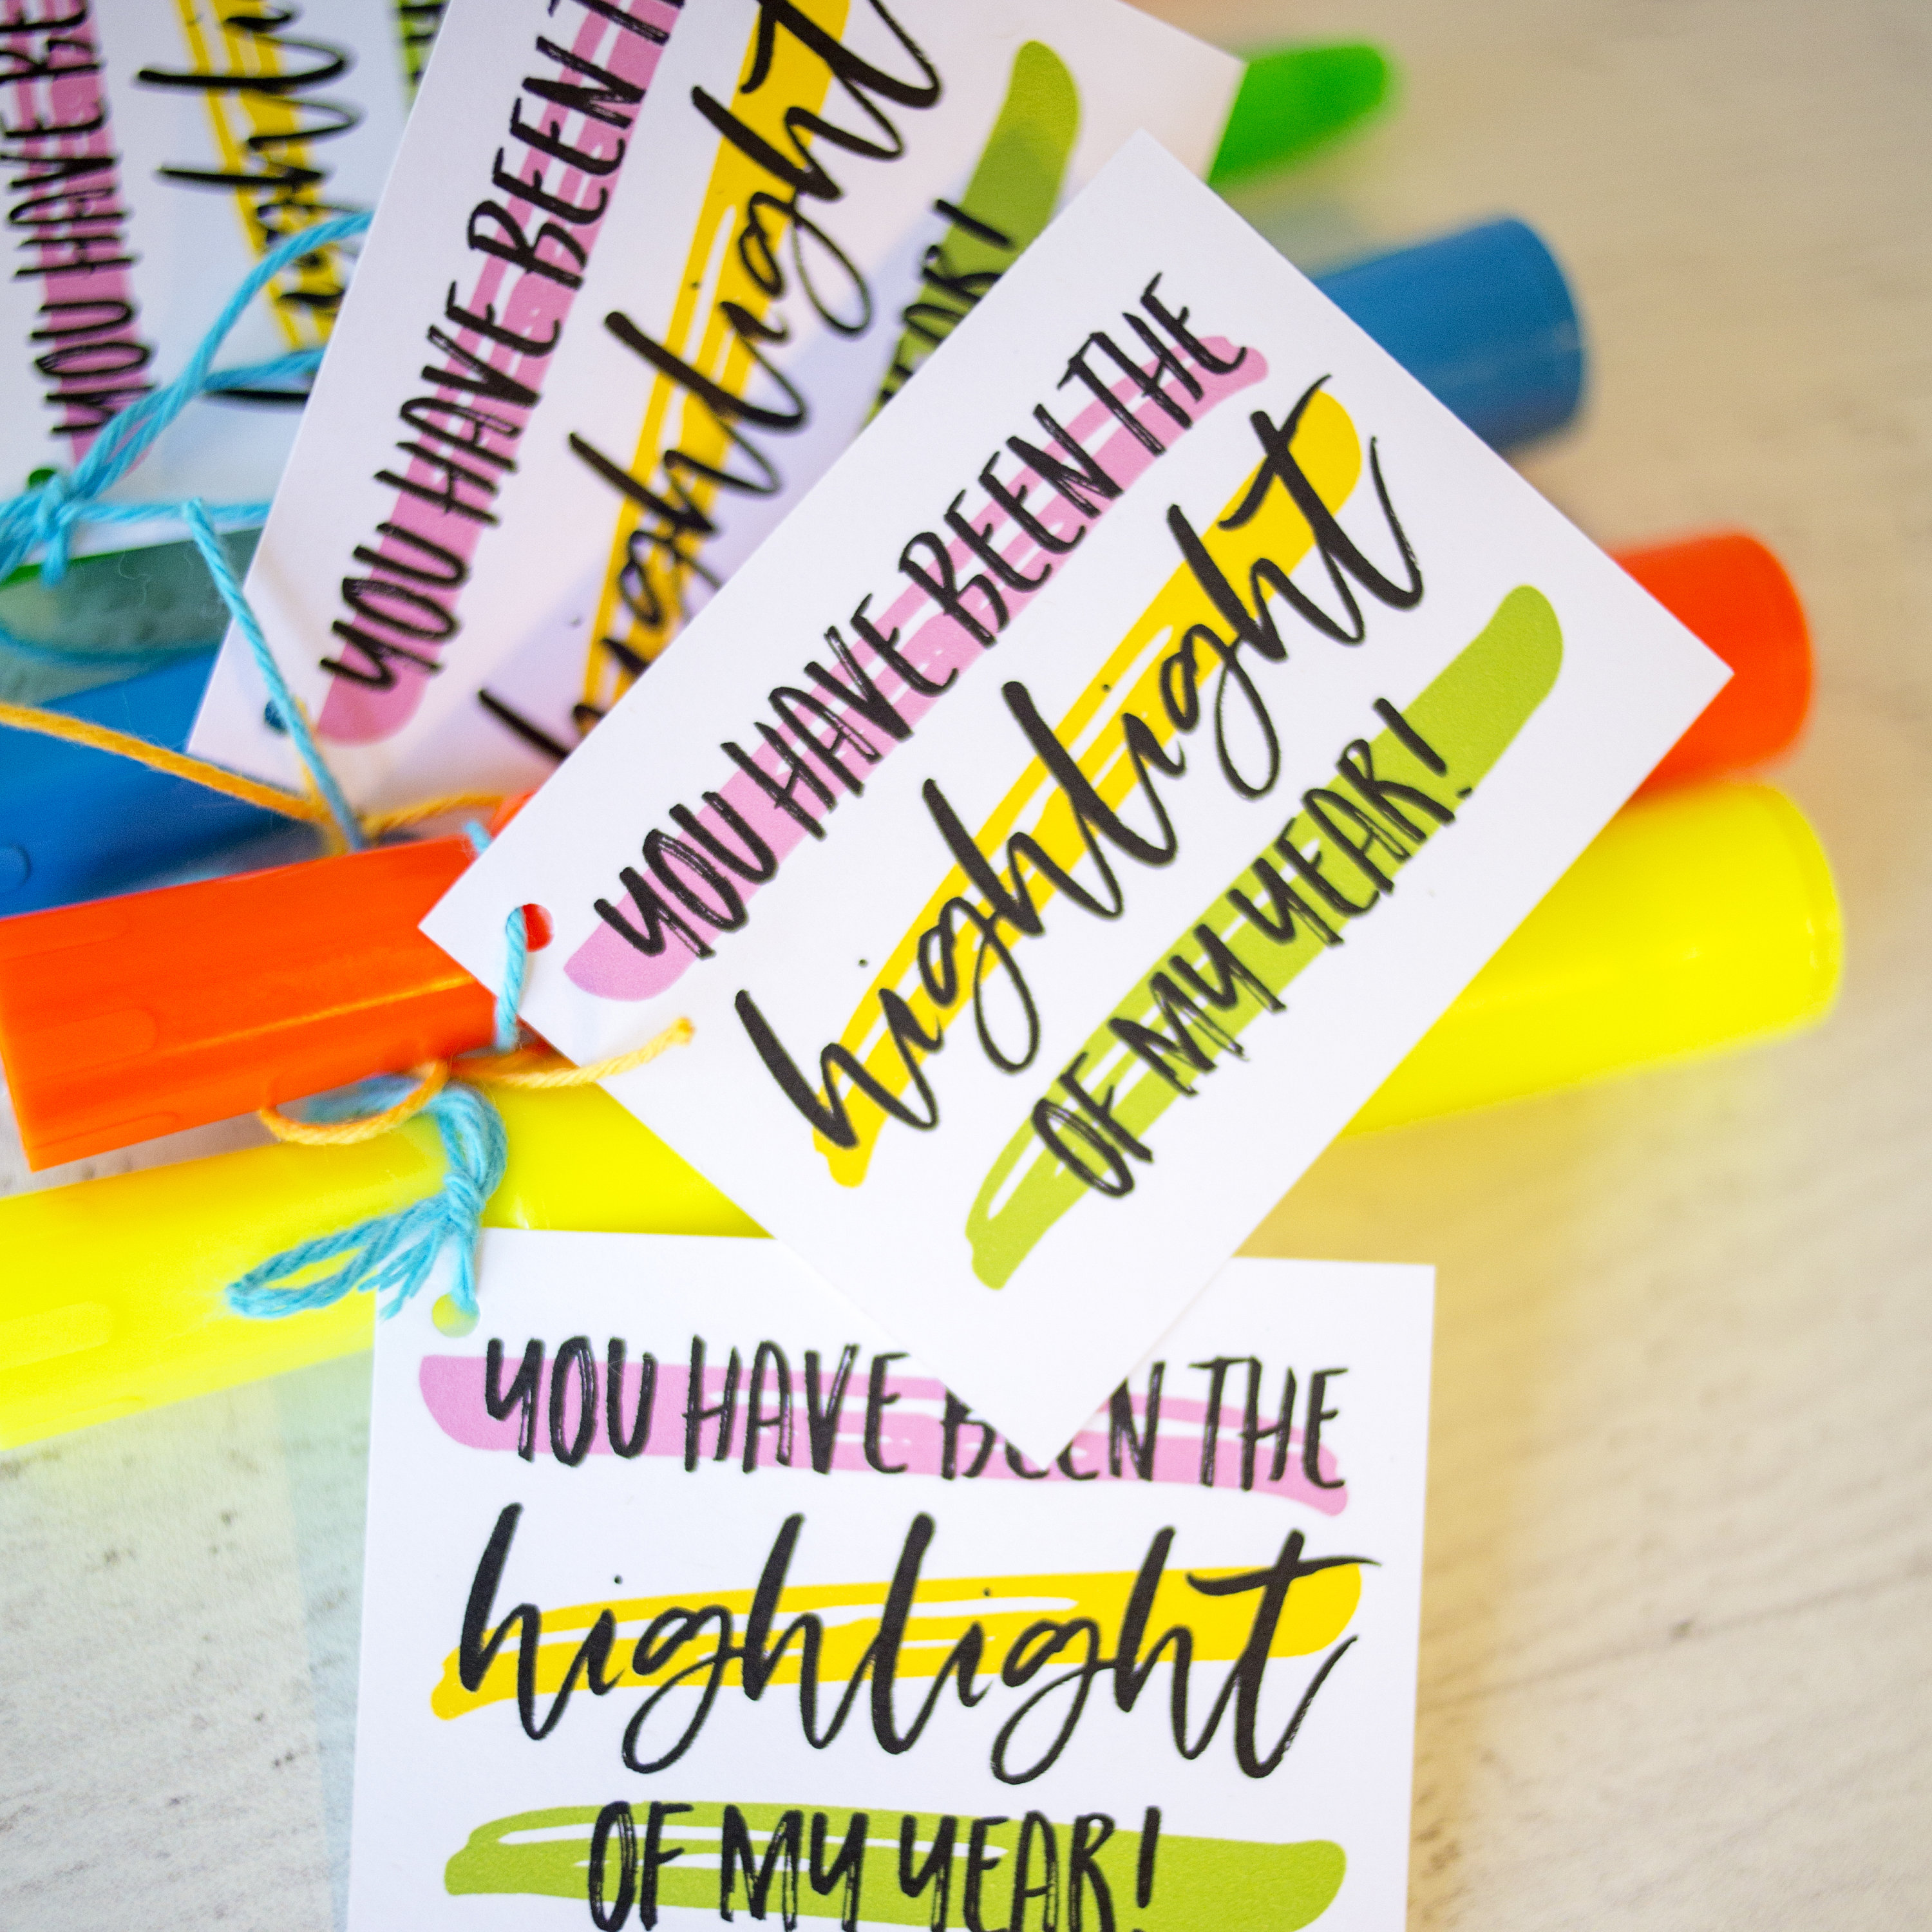 YOU HAVE BE
hl
igh
YOU HAVE BEEN T
highlight
YEAR!
YOU HAVE BEEN THE
highlight
OF MY YEAR!
YOU HAVE BEEN THE
highlight
OF MY YEAR!